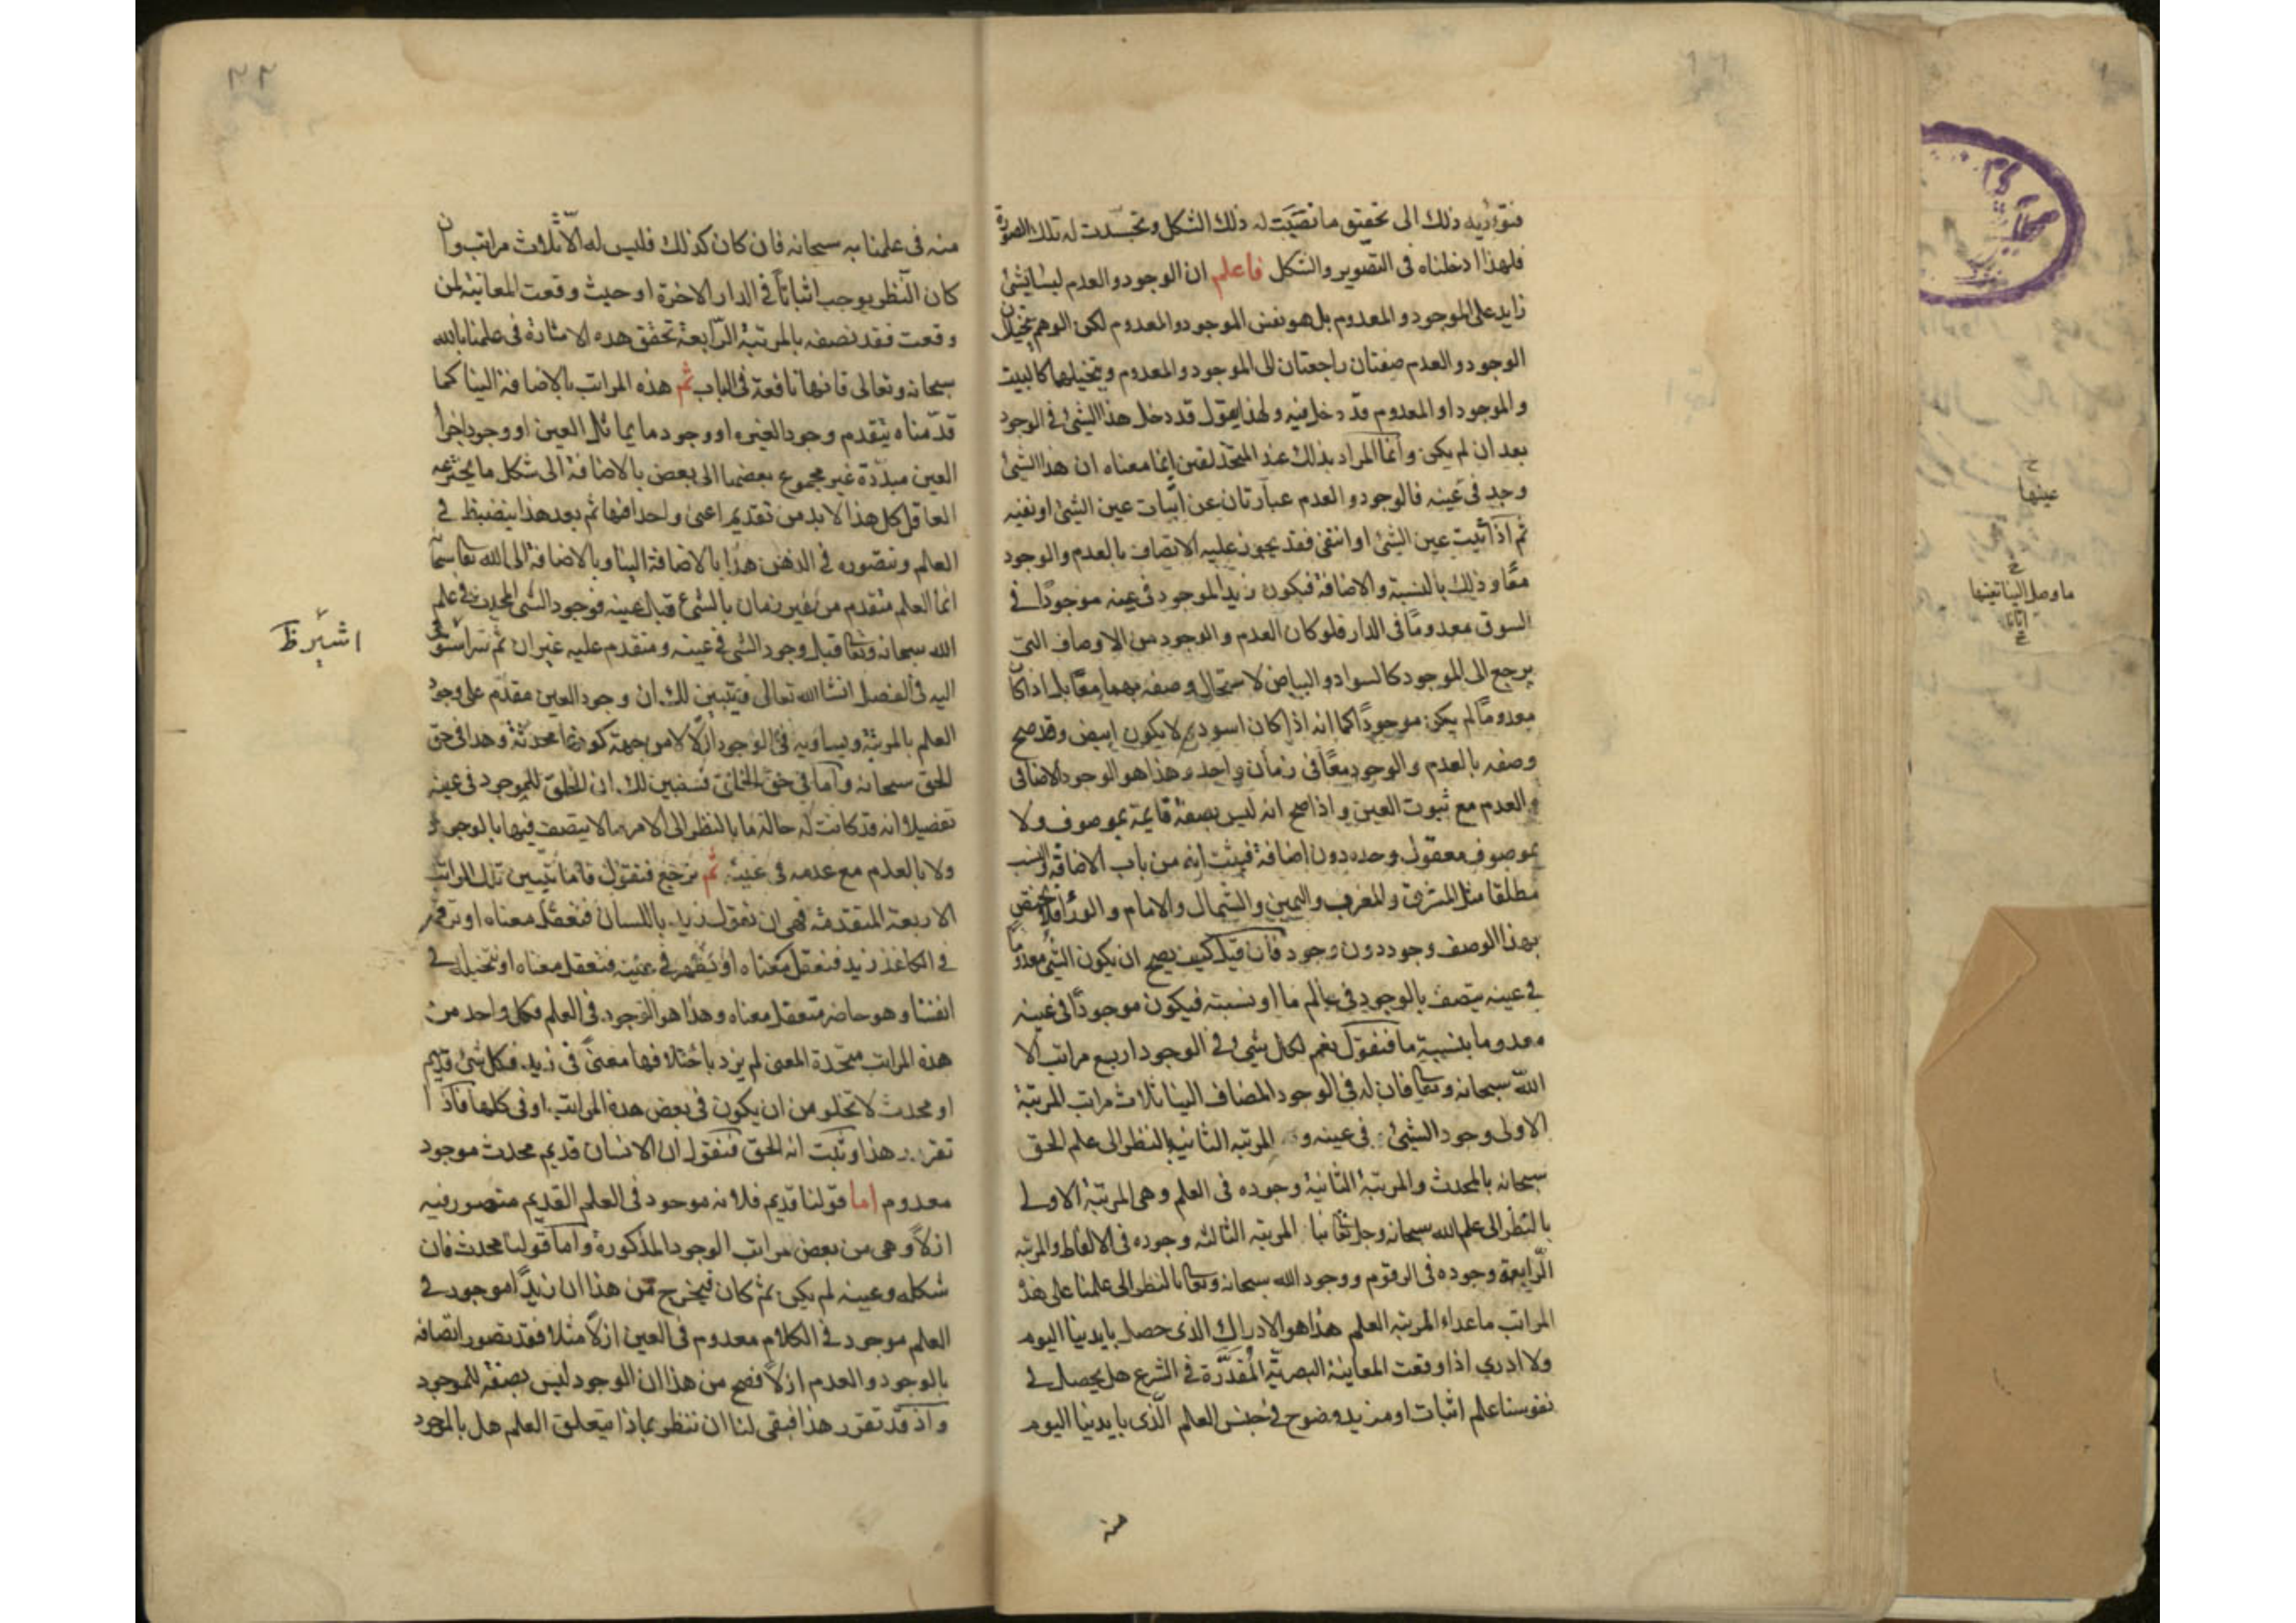 فتؤديه ذلك الى تحقيق ما نصبت له ذلك الشكل وتجسدت له تلك الصورة
فلهذا ادخلناه فى التصوير والشكل فاعلم ان الوجود والعدم ليسا بشئ
زايد على الموجود والمعدوم بل هو نفس الموجود والمعدوم لكن الوهم يتخيل ان
الوجود والعدم صفتان راجعتان الى الموجود والمعدوم ويتخيلهما كالبيت
والموجود او المعدوم قد دخل فيه ولهذا يقول قد دخل هذا الشئ فى الوجود
بعد ان لم يكن وانما المراد بذلك عند المتحذلقين انما معناه ان هذا الشئ
وجد فى عينه فالوجود والعدم عبارتان عن اثبات عين الشئ او نفيه
ثم اذا ثبت عين الشئ او انتفى فقد يجوز عليه الاتصاف بالعدم والوجود
معًا وذلك بالنسبة والاضافة فيكون زيد الموجود فى عينه موجودًا فى
السوق معدومًا فى الدار فلو كان العدم والوجود من الاوصاف التى
يرجع الى الموجود كالسواد والبياض لاستحال وصفه بهما معًا بل اذا كان
معدومًا لم يكن موجودًا كما انه اذا كان اسود لا يكون ابيض وقد صح
وصفه بالعدم والوجود معًا فى زمان واحد وهذا هو الوجود الاضافى
والعدم مع ثبوت العين واذا صح انه ليس بصفة قايمة بموصوف ولا
بموصوف معقول وحده دون اضافة فيثبت انه من باب الاضافة والنسب
مطلقا مثل المشرق والمغرب واليمين والشمال والامام والورا فلا يختص
بهذا الوصف وجود دون وجود فان قيل كيف يصح ان يكون الشئ معدوما
فى عينه يتصف بالوجود فى عالم ما او نسبته فيكون موجودًا فى عينه
معدوما بنسبة ما فنقول نعم لكل شئ فى الوجود اربع مراتب الا
الله سبحانه وتعا فان له فى الوجود المضاف الينا ثلاث مراتب المرتبة
الاولى وجود الشئ فى عينه و المرتبه الثانيه بالنظر الى علم الحق
سبحانه بالمحدث والمرتبة الثانية وجوده فى العلم وهى المرتبة الاولى
بالنظر الى علم الله سبحانه وجل ثنا بنا المرتبه الثالثه وجوده فى الالفاظ والمرتبه
الرّابعة وجوده فى الرقوم ووجود الله سبحانه وتعا بالنظر الى علمنا على هذه
المراتب ما عدا المرتبه العلم هذا هو الادراك الذى حصل بايدينا اليوم
ولا ادرى اذا وقعت المعاينة البصريّة المُقدَّرة فى الشرع هل يحصل فى
نفوسنا علم اثبات او مزيد وضوح فى جنس العلم الّذى بايدينا اليوم
منه
منه فى علمنا به سبحانه فان كان كذلك فليس له الّا ثلاث مراتب وان
كان النّظر يوجب اثباتاً فى الدار الاخرة او حيث وقعت المعاينة لمن
وقعت فقد نصفه بالمرتبة الرّابعة تحقق هذه الاشارة فى علمنا بالله
سبحانه وتعالى فانها نافعة فى الباب ثم هذه المراتب بالاضافة الينا كما
قدّمناه يتقدم وجود العين او وجود ما يماثل العين او وجود اجزا
العين مبدّدة غير مجموع بعضها الى بعض بالاضافة الى شكل ما يخترعه
العاقل كل هذا لا بد من تقديم اعنى واحدا منها ثم بعد هذا ينضبظ فى
العلم ونتصوره فى الذهن هذا بالاضافة الينا وبالاضافة الى الله تعا سما
انما العلم متقدم من غير زمان بالشئ قبل عينه فوجود الشئ المحدث فى علم
الله سبحانه وتعا قبل وجود الشئ فى عينه ومتقدم عليه غير ان ثم سرا سنومى
اليه فى الفصل انشا الله تعالى فيتبين لك ان وجود العين مقدّم على وجود
العلم بالمرتبة ويساويه فى الوجود ازلًا لا من جهة كونها محدثة وهذا فى حق
الحق سبحانه واما فى حق الخلق فنبين لك ان الخلق للموجود فى عينه
تفصيلا انه قد كانت له حالة ما بالنظر الى الامر ما لا يتصف فيها بالوجود
ولا بالعدم مع عدمه فى عينه ثم نرجع فنقول فاما تبيين تلك المراتب
الاربعة المتقدمة فهى ان نقول زيد باللسان فنعقل معناه او نرقم
فى الكاغذ زيد فنعقل معناه او يظهر فى عينه فنعقل معناه او نتخيله فى
انفسنا وهو حاضر فنعقل معناه وهذا هو الوجود فى العلم فكل واحد من
هذه المراتب متحدة المعنى لم يزد باختلافها معنىً فى زيد فكل شئ قديم
او محدث لا تخلو من ان يكون فى بعض هذه المراتب او فى كلها فاذا
تقرر هذا وثبت انه الحق فنقول ان الانسان قديم محدث موجود
معدوم اما قولنا قديم فلانه موجود فى العلم القديم متصور فيه
ازلاً وهى من بعض مراتب الوجود المذكورة واما قولنا محدث فان
شكله وعينه لم يكن ثم كان فيخرج من هذا ان زيدًا موجود فى
العلم موجود فى الكلام معدوم فى العين ازلاً مثلا فقد تصور اتصافه
بالوجود والعدم ازلاً فصح من هذا ان الوجود ليس بصفة للموجود
واذ قد تقرر هذا فبقى لنا ان ننظر بماذا يتعلق العلم هل بالموجود
اشير ظ
عينها
ما وصل الينا تينها